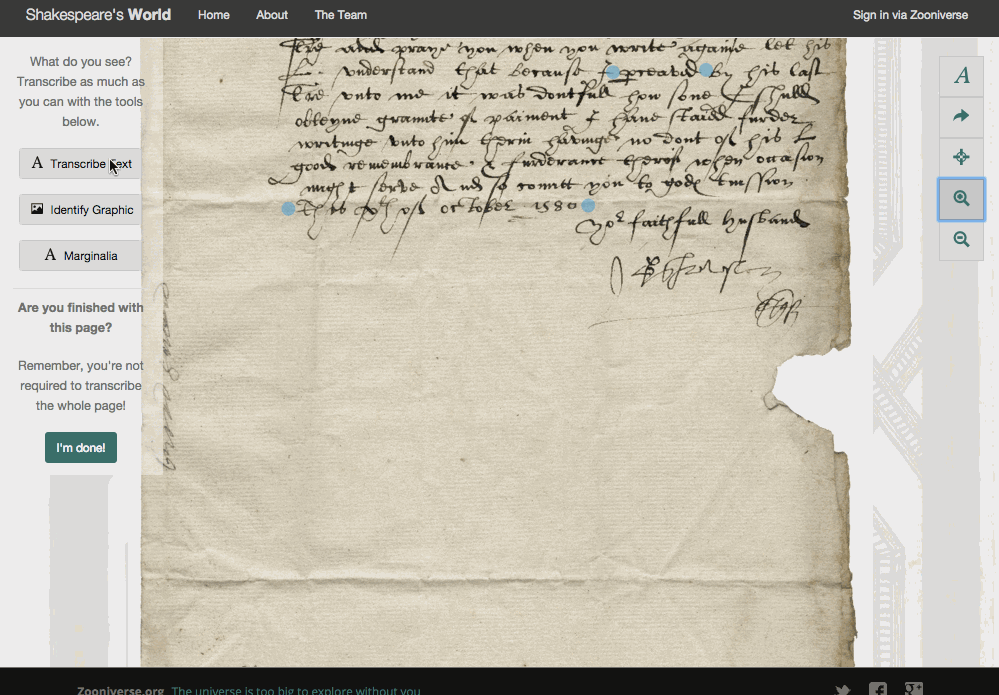 Shakespeare's World
Home
About
The Team
Sign in via Zooniverse
What do you see?
Transcribe as much as
you can with the tools
below.
A Transcribe Text
Identify Graphic
A Marginalia
Are you finished with
this page?
Remember, you're not
required to transcribe
the whole page!
I'm done!
A
lre and praye you when you write againe let his
L. vnderstand that because by his last
lre vnto me it was dontfull how sone I shuld
obteyne graunte of paiment I haue staied furder
writinge vnto him therin havinge no dout of his L
good remembrance & furderance therof when occasion
might serve And so comitt you to gode tuission
This of october 1580
Yor faithfull husband
Zooniverse.org The universe is too big to explore without you